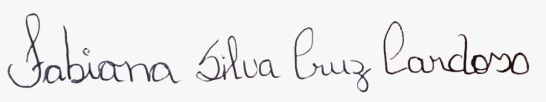 Fabiana Silva Cruz Cardoso